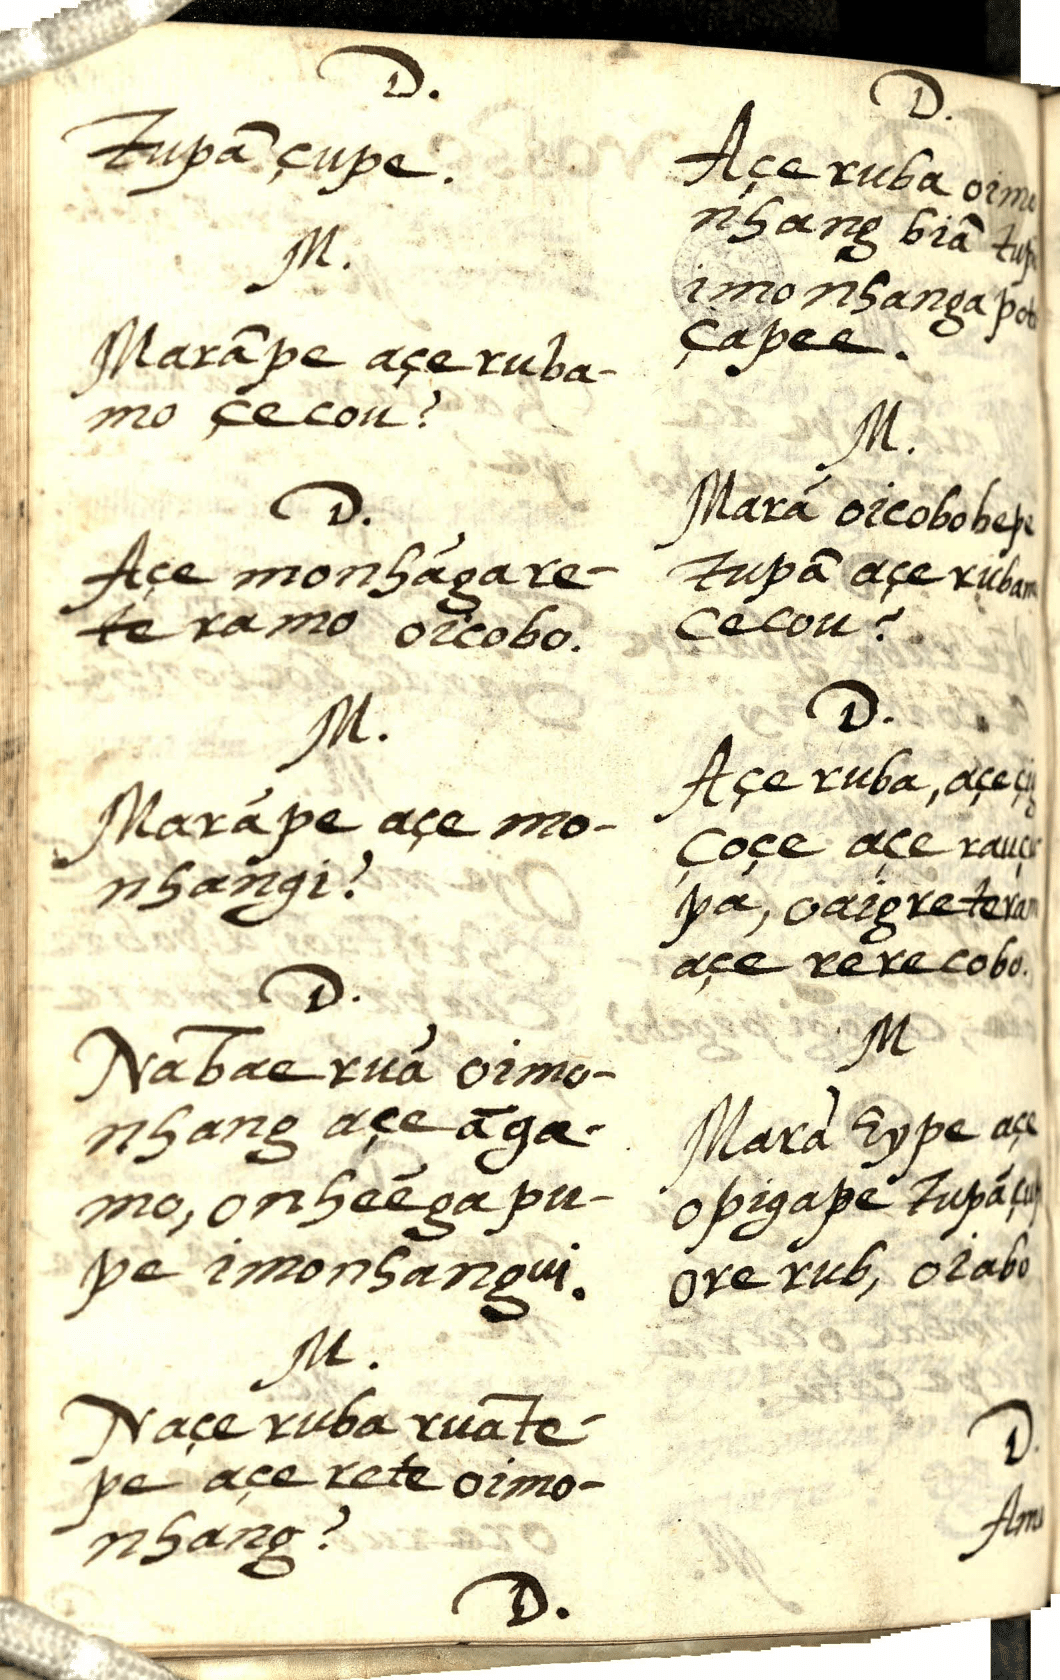 D.
Tupã çupe.
M.
Marãpe açe ruba-
mo çecou?
D.
Açe monhágare-
te ramo oicobo.
M.
Marápe açe mo-
nhangi?
D.
Nabae ruã oimo-
nhang açe ãga-
mo, onheẽga pu-
pe imonhangui.
M.
Naçe ruba ruãte-
pe açe rete oimo-
nhang?
D.
D.
Açe ruba oimo
nhang biã
imonhanga
çapee.
M.
Marã oicobobepe
Tupã açe rubam
cecou?
D.
Açe ruba, açe
çoçe açe
pa, oaigreteram
açe rerecobo.
M
Marà Eype açe
opigape Tupã
ore rub, oiabo
D.